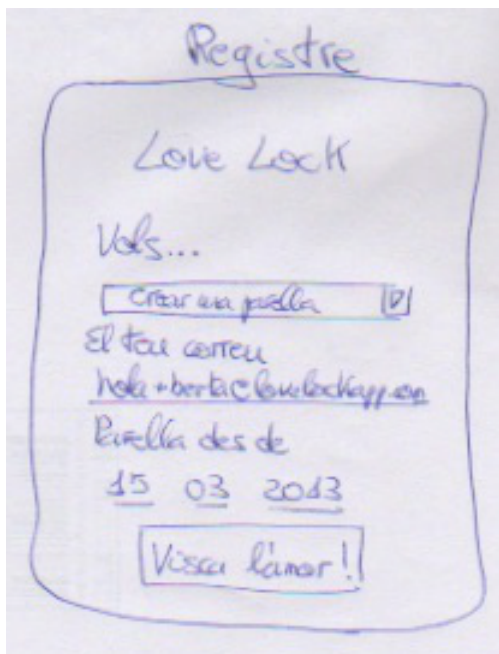 Registre
Love Lock
Vols...
Crear una parella
El teu correu
hola+berta@lovelockapp.com
Parella des de
15 03 2013
Visca l'amor!